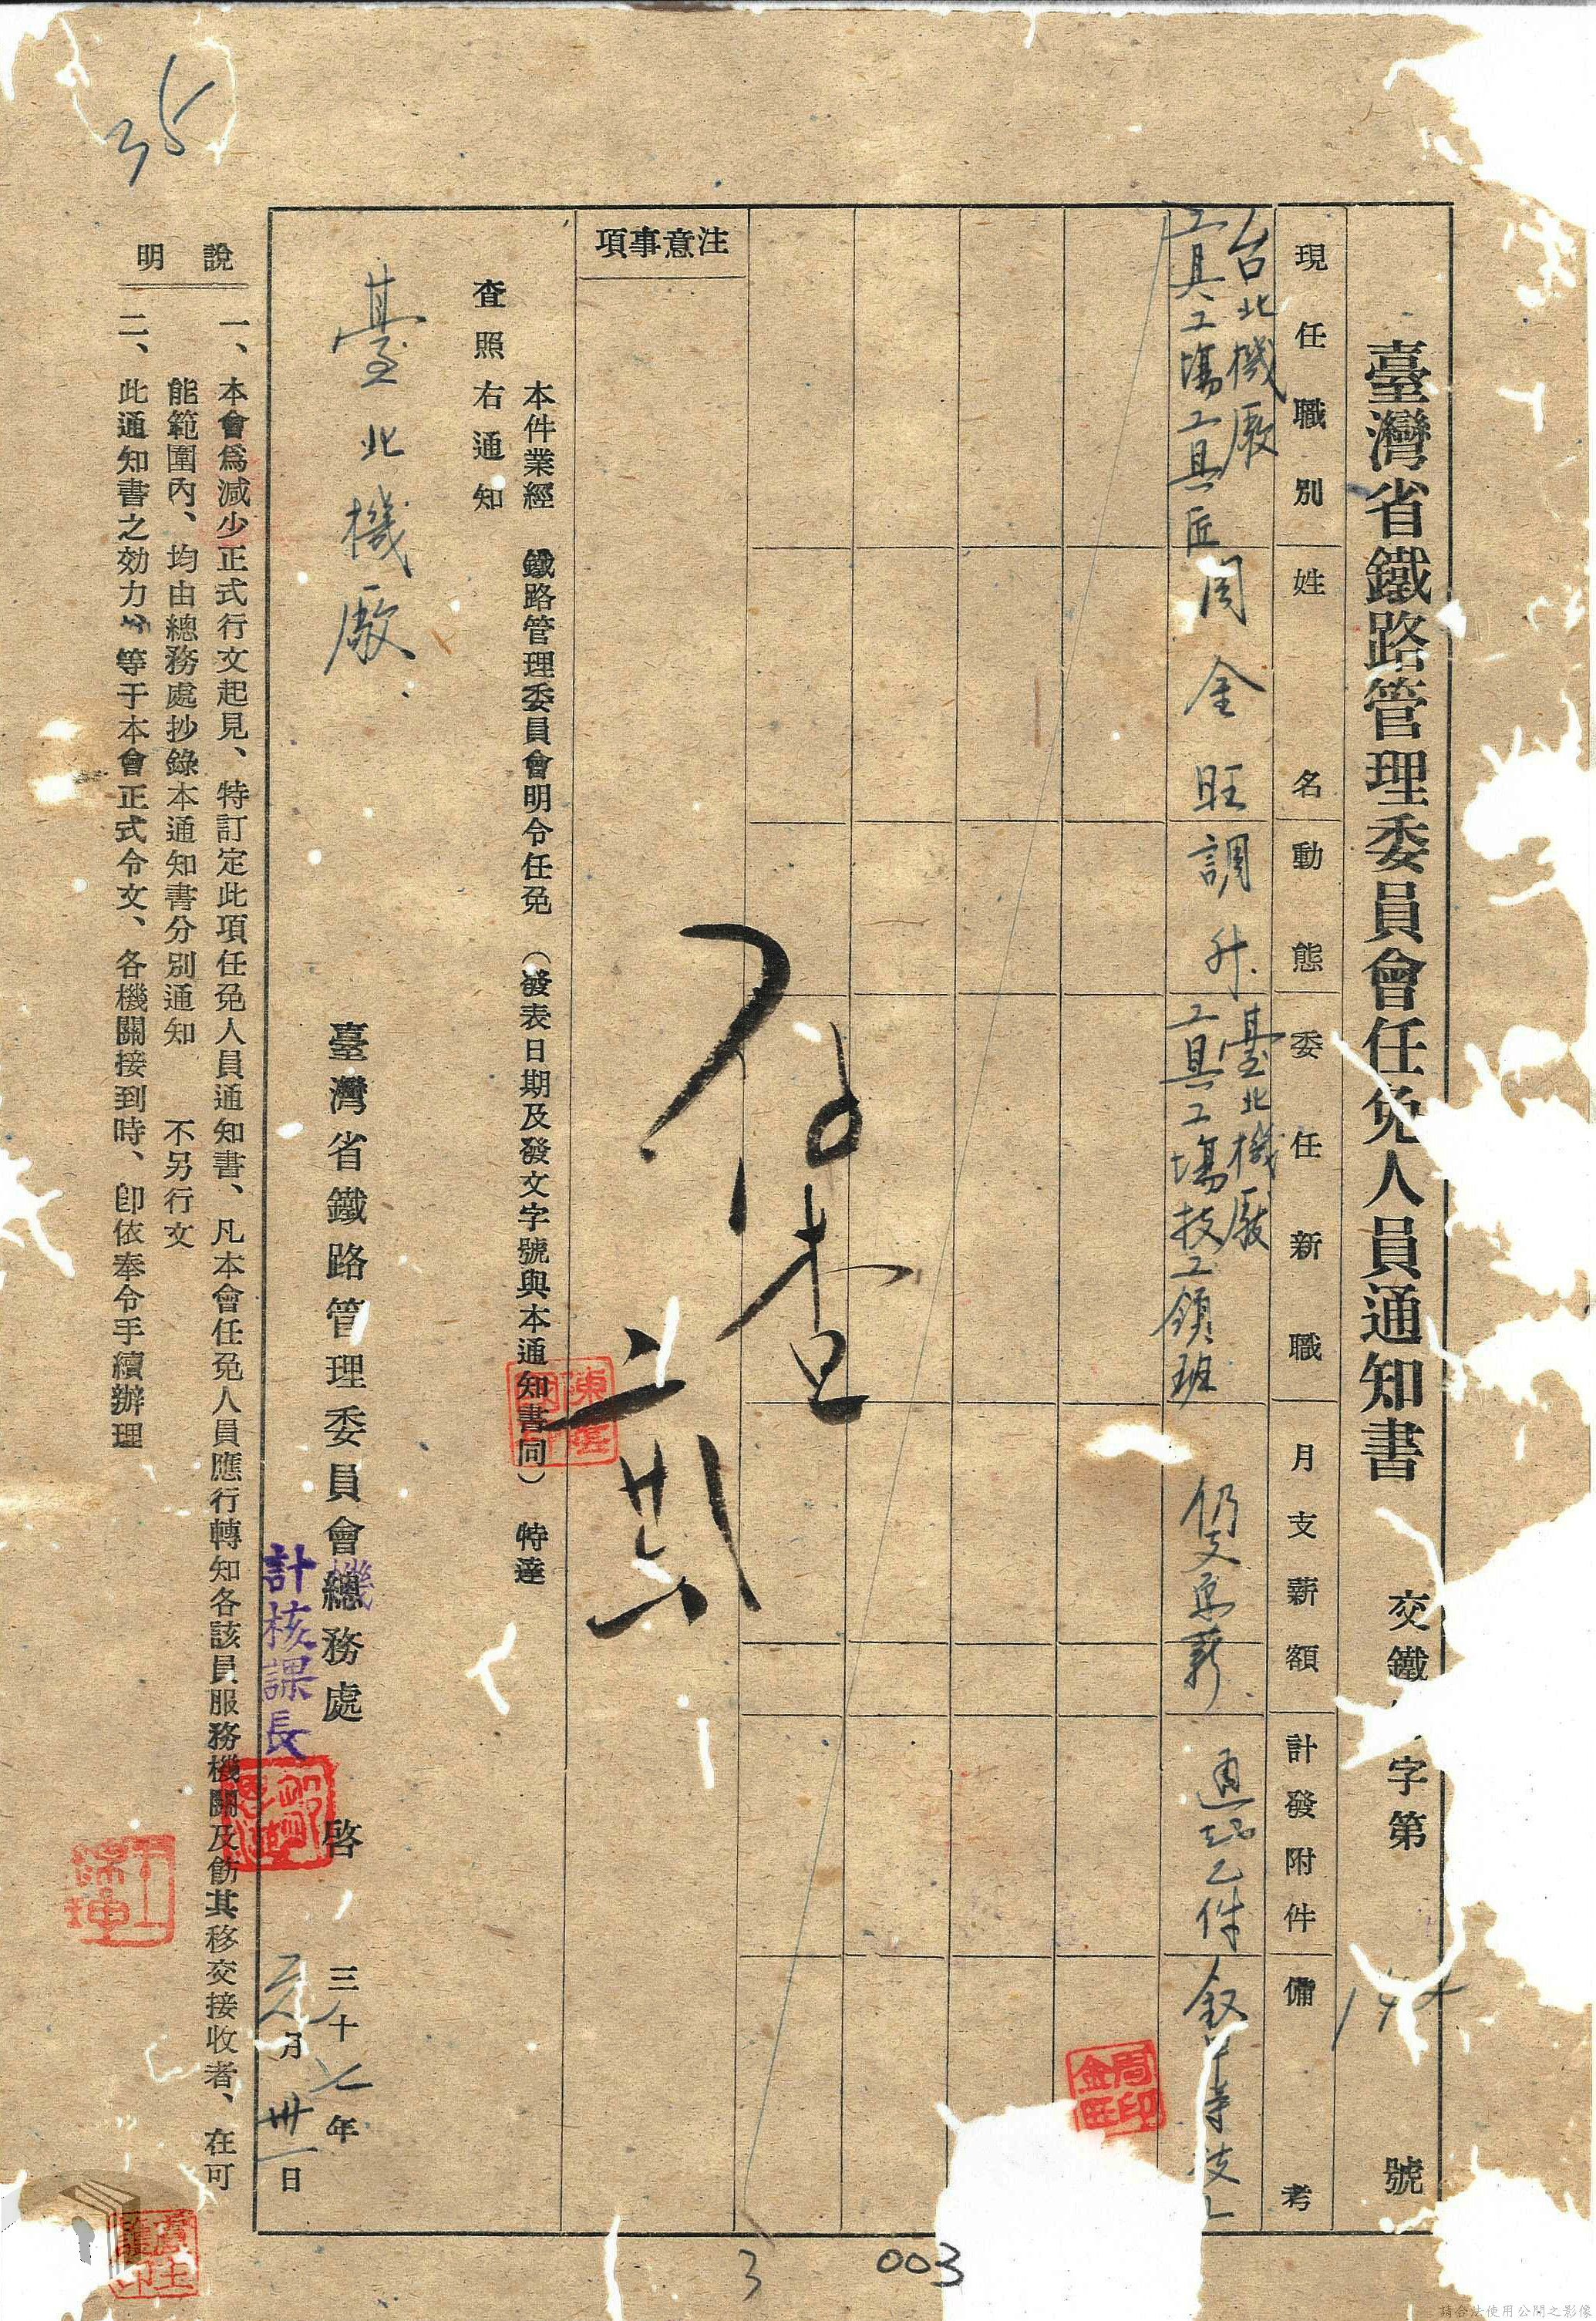 臺灣省鐵路管理委員會任免人員通知書
交鐵 字第 號
現任職別
姓名
動態
委任新職
月支薪額
計發附件
備考
台北機廠
工具工場工具匠
周金旺
調升
臺北機廠
工具工場技工領班
仍支原薪
通知乙件
叙 等技工
周印金旺
注意事項
存查
本件業經 鐵路管理委員會明令任免(發表日期及發文字號與本通知書同)特達
查照右通知
臺北機廠
臺灣省鐵路管理委員會總務處 啓
三十七年
元月卅一日
計核課長
說明
一、本會爲减少正式行文起見、特訂定此項任免人員通知書、凡本會任免人員應行轉知各該員服務機關及飭其移交接收者、在可
能範圍內、均由總務處抄錄本通知書分別通知 不另行文
二、此通知書之効力 等于本會正式令文、各機關接到時、卽依奉令手續辦理
35
3
003
請合法使用公開之影像